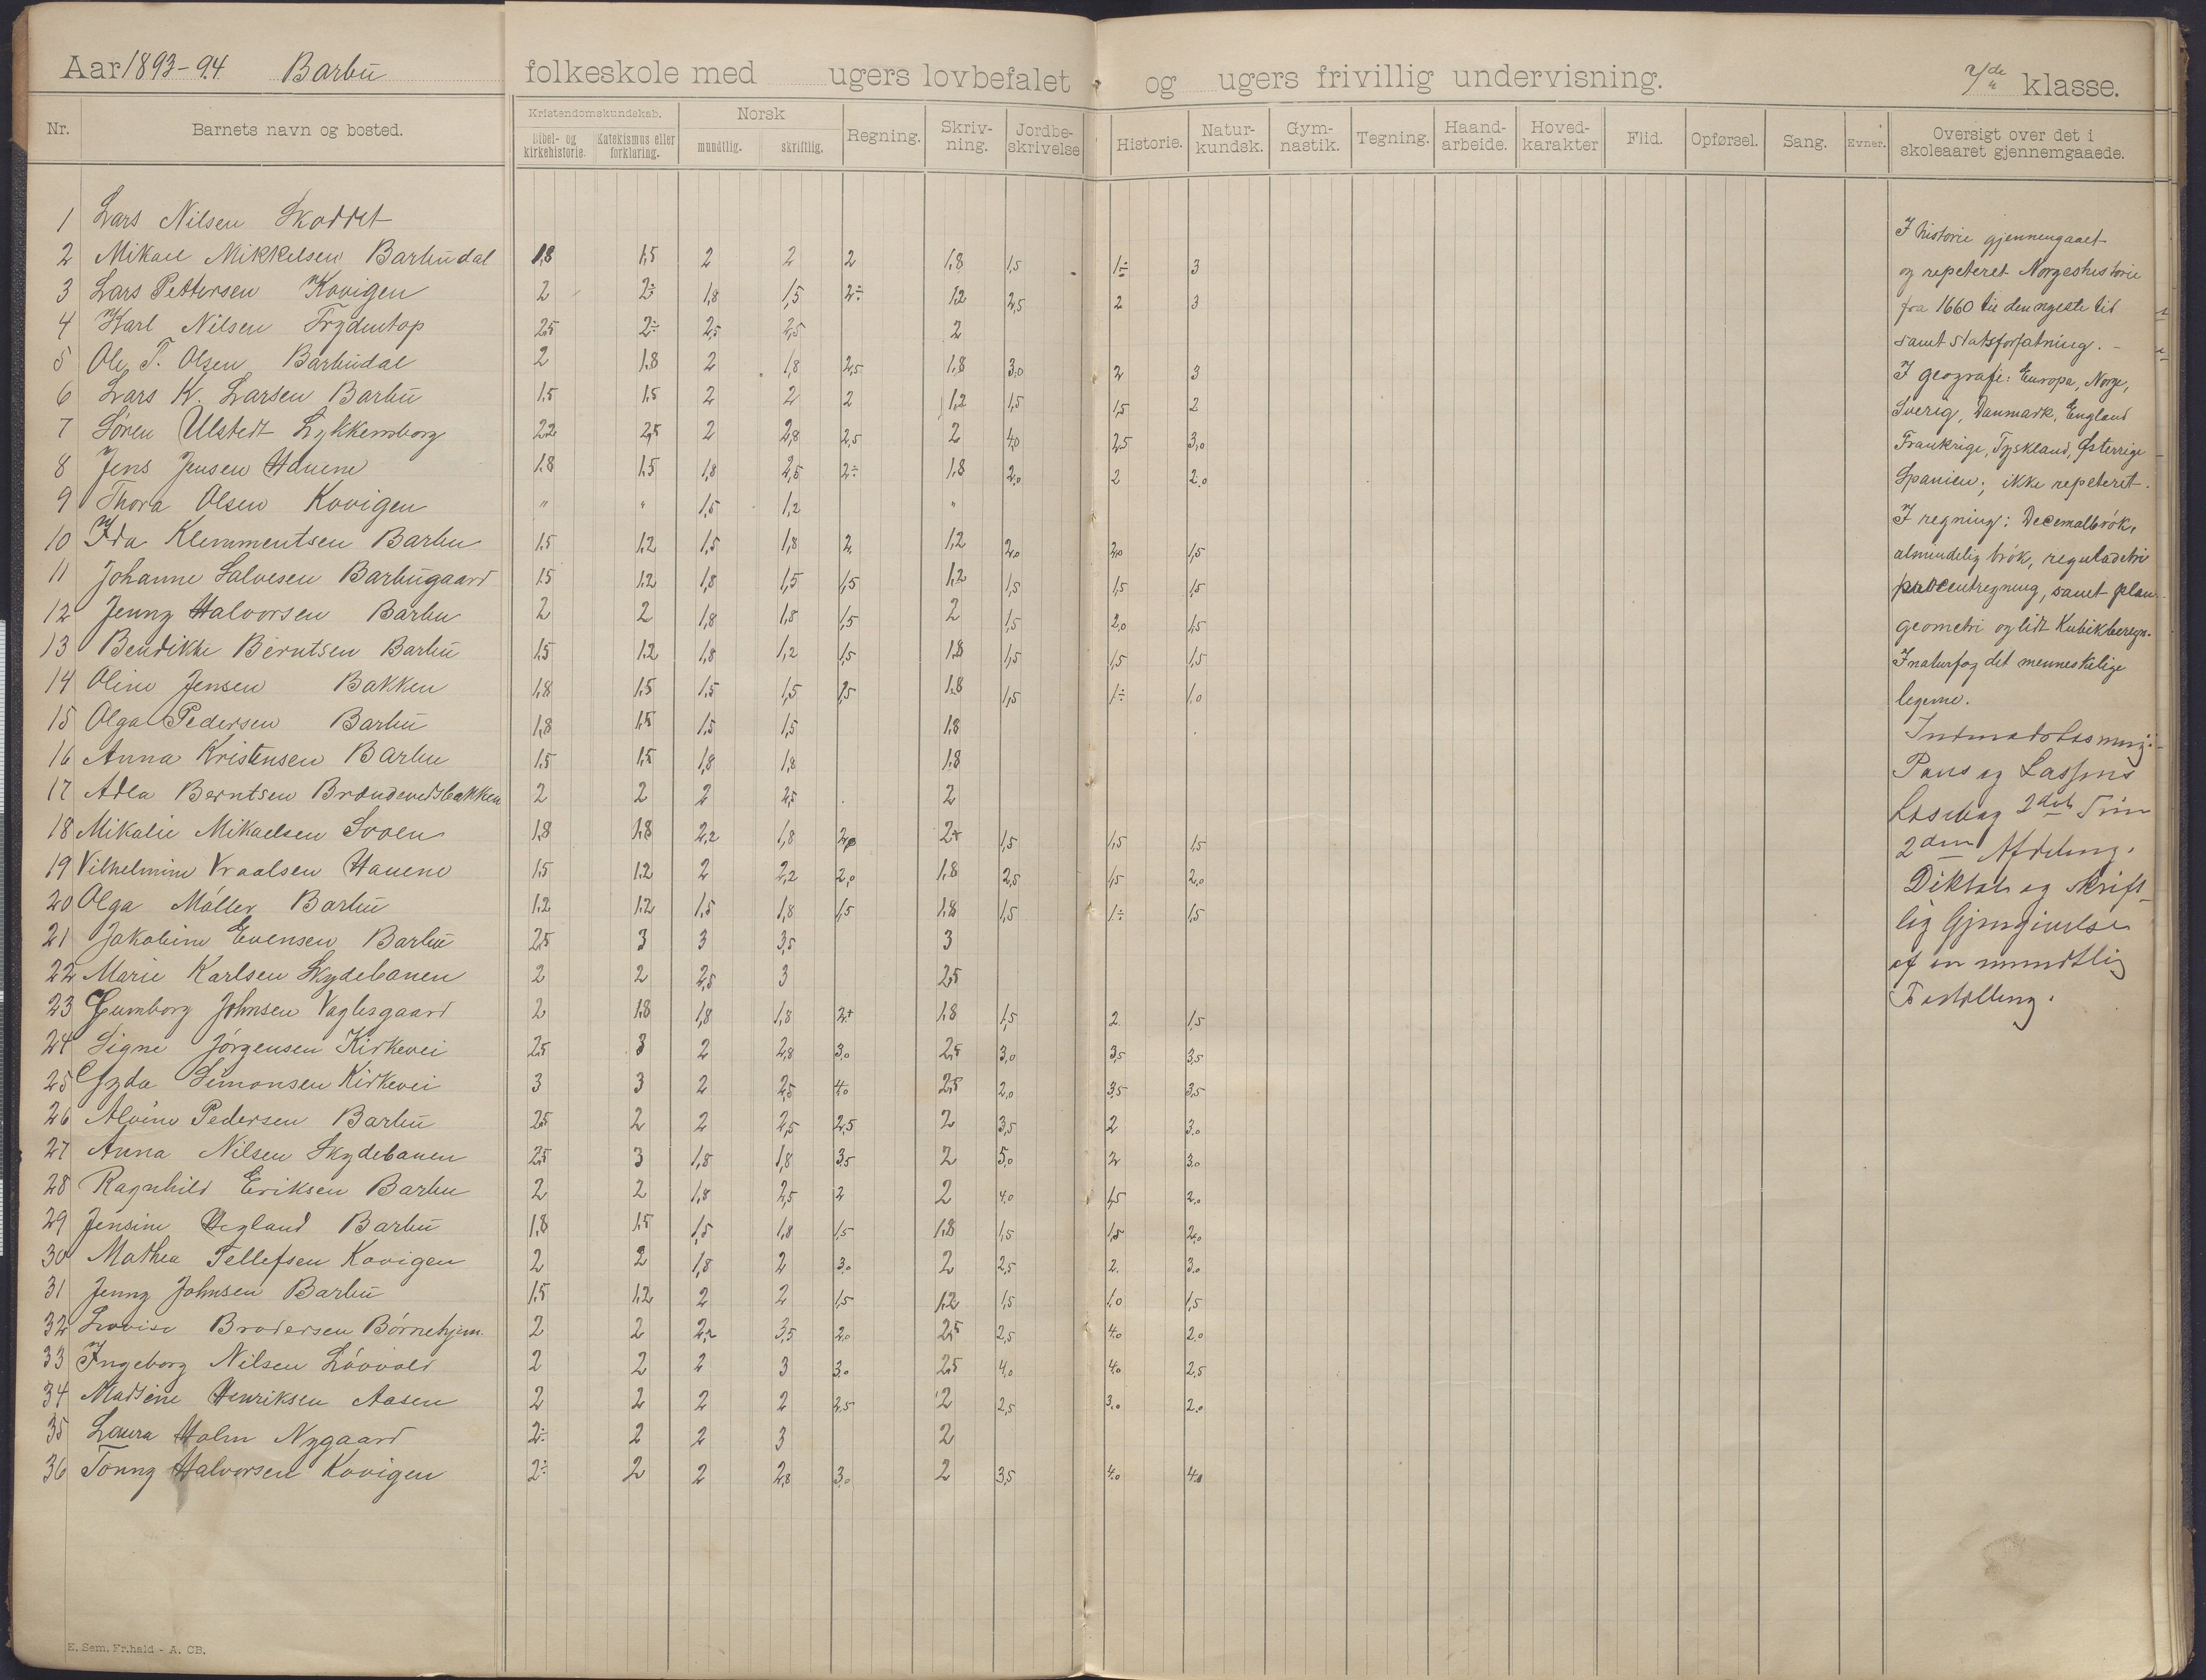 Aar 1893-94 Barbu folkeskole med ugers lovbefalet og ugers frivillig undervisning. 7de klasse.
Nr. Barnets navn og bosted. Kristendomskundskab. Bibel- og kirkehistorie. Katekismus eller forklaring. Norsk mundtlig. skriftlig. Regning. Skrivning. Jordbeskrivelse Historie. Naturkundsk. Gymnastik. Tegning. Haandarbeide. Hovedkarakter Flid. Opførsel. Sang. Evner. Oversigt over det i skoleaaret gjennemgaaede.
1 Lars Nilsen
2 Mikael Mikkelsen Barbudal 1,8 1,5 2 2 2 1,8 1,5 1÷ 3
3 Lars Pettersen Kovigen 2 2÷ 1,8 1,5 2÷ 1,2 2,5 2 3
4 Karl Nilsen Frydentop 2,5 2÷ 2,5 2,5 2
5 Ole T. Olsen Barbudal 2 1,8 2 1,8 2,5 1,8 3,0 2 3
6 Lars K. Larsen Barbu 1,5 1,5 2 2 2 1,2 1,5 1,5 2
7 Søren Ulstedt Lykkensborg 2,2 2,5 2 2,8 2,5 2 4,0 2,5 3,0
8 Jens Jensen Hauene 1,8 1,5 1,8 2,5 2÷ 1,8 2,0 2 2,0
9 Thora Olsen Kovigen " " 1,5 1,2 "
10 Ida Klemmentsen Barbu 1,5 1,2 1,5 1,8 2 1,2 2,0 2,0 1,5
11 Johanne Salvesen Barbugaard 1,5 1,2 1,8 1,5 1,5 1,2 1,5 1,5 1,5
12 Jenny Halvorsen Barbu 2 2 1,8 1,8 1,5 2 1,5 2,0 1,5
13 Bendikte Berntsen Barbu 1,5 1,2 1,8 1,2 1,5 1,8 1,5 1,5 1,5
14 Oline Jensen Bakken 1,8 1,5 1,5 1,5 1,5 1,8 1,5 1÷ 1,0
15 Olga Pedersen Barbu 1,8 1,5 1,5 1,5 1,8
16 Anna Kristensen Barbu 1,5 1,5 1,8 1,8 1,8
17 Adla Berntsen Brændevedsbakken 2 2 2 2,5 2
18 Mikalie Mikaelsen Sooen 1,8 1,8 2,2 1,8 2,0 2+ 1,5 1,5 1,5
19 Vilhelmine Vraalsen Hauene 1,5 1,2 2 2,2 2,0 1,8 2,5 1,5 2,0
20 Olga Møller Barbu 1,2 1,2 1,5 1,8 1,5 1,8 1,5 1÷ 1,5
21 Jakobine Evensen Barbu 2,5 3 3 3,5 3
22 Marie Karlsen Skydebanen 2 2 2,5 3 2,5
23 Gumborg Johnsen Vaglesgaard 2 1,8 1,8 1,8 2+ 1,8 1,5 2 1,5
24 Signe Jørgensen Kirkevei 2,5 3 2 2,8 3,0 2,5 3,0 3,5 3,5
25 Gyda Simonsen Kirkevei 3 3 2 2,5 4,0 2,5 2,0 3,5 3,5
26 Alvine Pedersen Barbu 2,5 2 2 2,5 2,5 2 3,5 2 3,0
27 Anna Nilsen Skydebanen 2,5 3 1,8 1,8 3,5 2 5,0 2 3,0
28 Ragnhild Eriksen Barbu 2 2 1,8 2,5 2 2 4,0 1,5 2,0
29 Jensine Hegland Barbu 1,8 1,5 1,5 1,8 1,5 1,8 1,5 1,5 2,0
30 Mathea Tellefsen Kovigen 2 2 1,8 2 3,0 2 2,5 2 3,0
31 Jenny Johnsen Barbu 1,5 1,2 2 2 1,5 1,2 1,5 1,0 1,5
32 Lovise Brodersen Børnehjem. 2 2 2,2 3,5 2,0 2,5 2,5 4,0 2,0
33 Ingeborg Nilsen Løvvold 2 2 2 3 3,0 2,5 4,0 4,0 2,5
34 Madsine Henriksen Aasen 2 2 2 2 2,5 2 2,5 3,0 2,0
35 Laura Holm Nygaard 2÷ 2 2 3 2
36 Tonny Halvorsen Kovigen 2÷ 2 2 2,8 3,0 2 3,5 4,0 4,0
I historie gjennemgaaet
og repeteret Norgeshistorie
fra 1660 til den nyeste tid
samt statsforfatning. -
I geografi: Europa, Norge,
Sverig, Danmark, England
Frankrige, Tyskland, Østerrige
Spanien; ikke repeteret.
I regning: Decemalbrøk,
almindelig brøk, reguladetri
procentregning, samt plan
geometri og lidt Kubikberegn.
I naturfag det menneskelige
legeme.
Paus og Lassens
Læsebog 2det Trin
2den Afdeling.
Diktat og skrift-
lig Gjengivelse
af en mundtlig
Fortælling.
E. Sem, Fr.hald - A. CB.